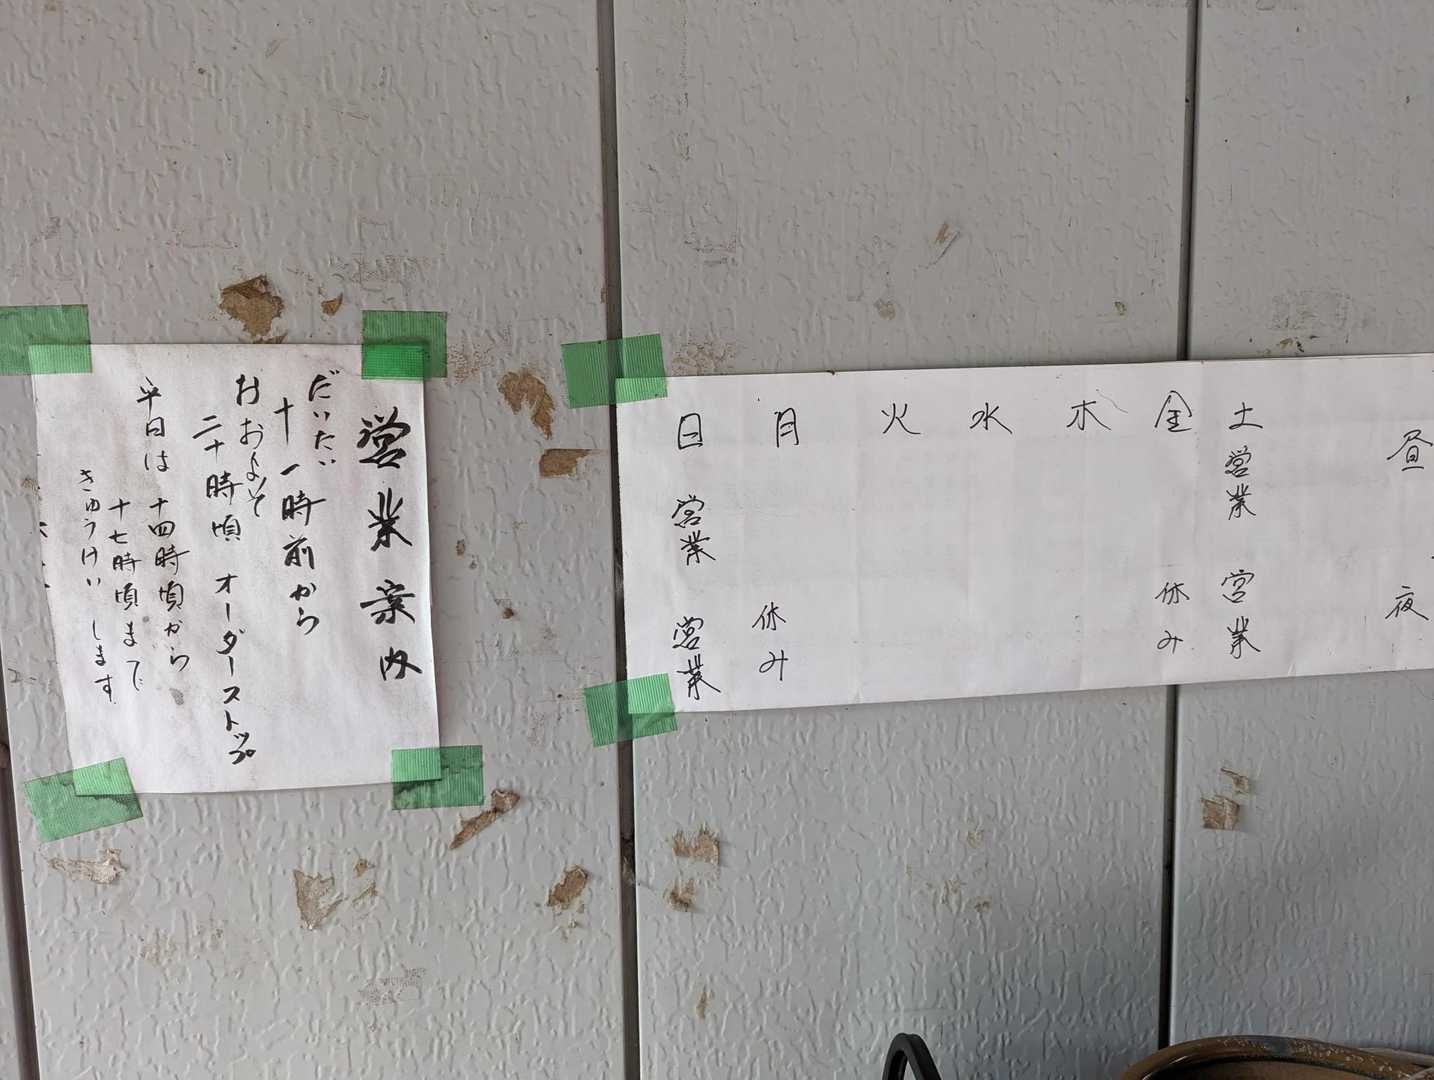 営業案内
だいたい
十一時前から
おおよそ
二十時頃 オーダーストップ
平日は 十四時頃から
十七時頃まで
きゅうけい します
昼 夜
土 営業 営業
金 休み
木
水
火
月 休み
日 営業 営業